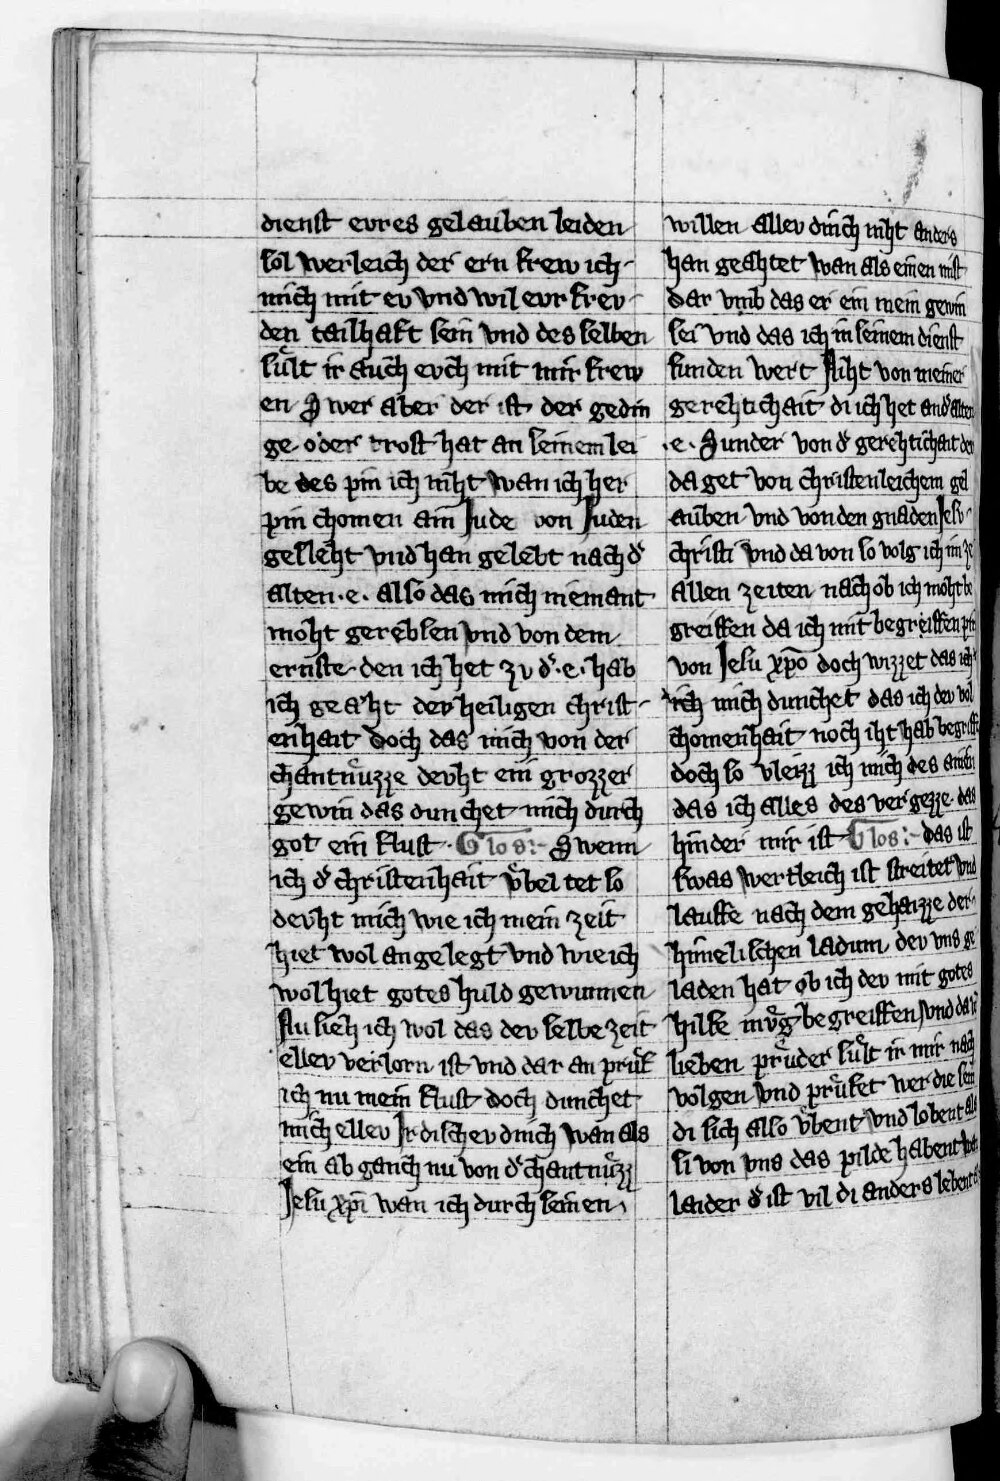 dienst evres gelauben leiden
sol werleich der ern frew ich
mich mit ev vnd wil evr frev
den tailhaft sein vnd des selben
suͤlt ir auch evch mit mir frew
en Swer aber der ist der gedin
ge oder trost hat an seinem lei
be des pin ich niht wan ich her
pin chomen ain Jude von Juden
geslëht vnd han gelebt nach dˢ
alten .e. also das mich niemant
moht gereblen vnd von dem
ernste den ich het zv dˢ .e. hab
ich geaͤht der heiligen christ
enhait doch das mich von der
chantnuͤzze devht ein grozzer
gewin das dunchet mich durch
got ein flust Glos:- Swenn
ich dˢ christenhait vͤbel tet so
devht mich wie ich mein zeit
hiet wol angelegt vnd wie ich
wol hiet gotes huld gewunnen
Nu sieh ich wol das dev selbe zeit
ellev verlorn ist vnd dar an pruͤf
ich nu mein flust doch dunchet
mich ellev Irdischev dinch wan als
ein ab ganch nu von dˢ chantnuͤzz
Jesu xpi wan ich durch seinen
willen allev dinch niht anders
han geahtet wan als einen mist
dar vmb das er ein mein gewin
sei vnd das ich in seinem dienst
funden wert Niht von meiner
gerehtichait di ich het an dˢ alten
.e. Sunder von dˢ gerehtichait der
da get von christenleichem gel
auben vnd von den gnaden Jesv
christi vnd da von so volg ich im ze
allen zeiten nach ob ich moht be
greiffen da ich mit begreiffen pin
von Jesu xpo doch wizzet das ich
ich mich dunchet das ich dev vol
chomenhait noch iht hab begriffen
doch so vleizz ich mich des ainen
das ich alles des vergezze das
hinder mir ist Glos:- Das ist
swas wertleich ist streitet vnd
lauffe nach dem gehaizze der
himelischen ladum dev vns ge
laden hat ob ich dev mit gotes
hilfe muͤg begreiffen vnd da
lieben pruͤder suͤlt ir mir nach
volgen vnd pruͤfet wer die sein
di sich also vͤbent vnd lobent als
si von vns das pilde habent
laider dˢ ist vil di anders lebent